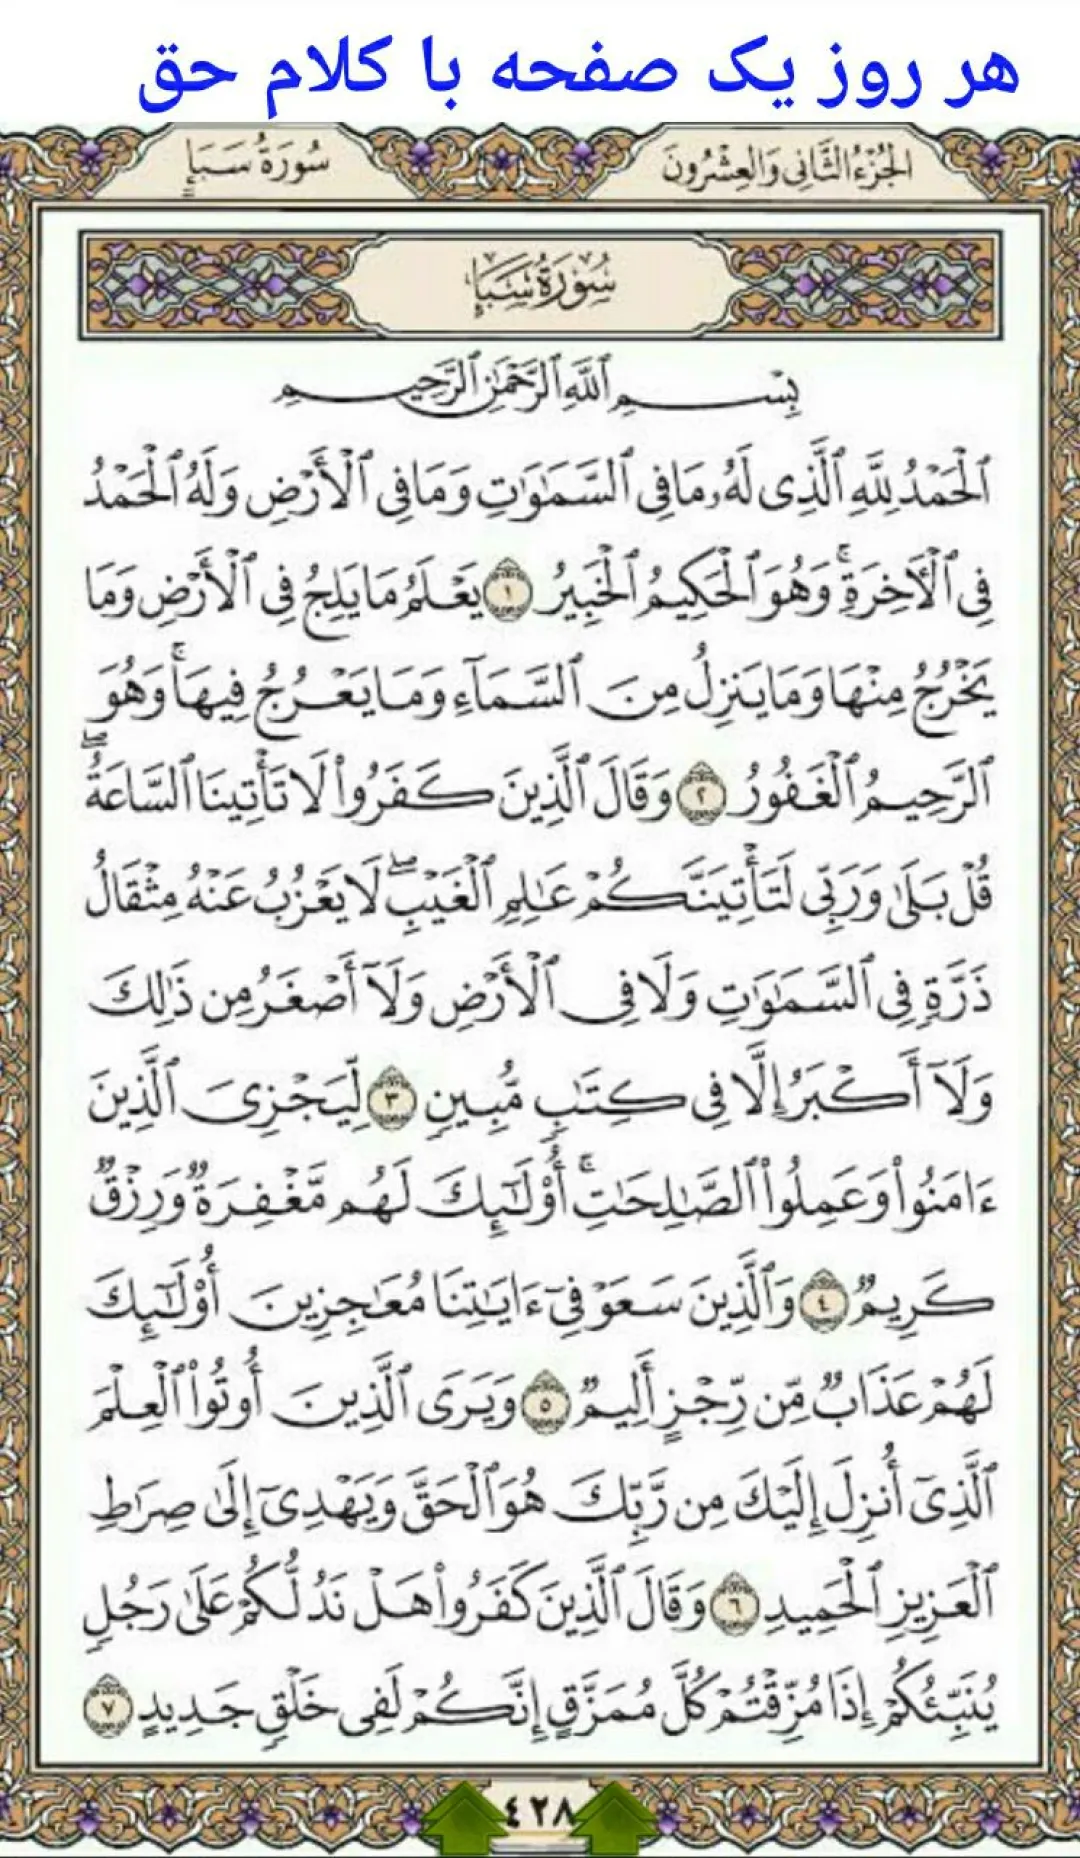 هر روز یک صفحه با کلام حق
الجُزْءُ الثَّانِى وَالعِشْرُونَ
سُورَةُ سَبَإٍ
سُورَةُ سَبَإٍ
بِسْمِ ٱللَّهِ ٱلرَّحْمَٰنِ ٱلرَّحِيمِ
ٱلْحَمْدُ لِلَّهِ ٱلَّذِى لَهُۥ مَا فِى ٱلسَّمَٰوَٰتِ وَمَا فِى ٱلْأَرْضِ وَلَهُ ٱلْحَمْدُ
فِى ٱلْءَاخِرَةِ ۚ وَهُوَ ٱلْحَكِيمُ ٱلْخَبِيرُ ١ يَعْلَمُ مَا يَلِجُ فِى ٱلْأَرْضِ وَمَا
يَخْرُجُ مِنْهَا وَمَا يَنزِلُ مِنَ ٱلسَّمَآءِ وَمَا يَعْرُجُ فِيهَا ۚ وَهُوَ
ٱلرَّحِيمُ ٱلْغَفُورُ ٢ وَقَالَ ٱلَّذِينَ كَفَرُوا۟ لَا تَأْتِينَا ٱلسَّاعَةُ ۖ
قُلْ بَلَىٰ وَرَبِّى لَتَأْتِيَنَّكُمْ عَٰلِمِ ٱلْغَيْبِ ۖ لَا يَعْزُبُ عَنْهُ مِثْقَالُ
ذَرَّةٍ فِى ٱلسَّمَٰوَٰتِ وَلَا فِى ٱلْأَرْضِ وَلَآ أَصْغَرُ مِن ذَٰلِكَ
وَلَآ أَكْبَرُ إِلَّا فِى كِتَٰبٍ مُّبِينٍ ٣ لِّيَجْزِىَ ٱلَّذِينَ
ءَامَنُوا۟ وَعَمِلُوا۟ ٱلصَّٰلِحَٰتِ ۚ أُو۟لَٰٓئِكَ لَهُم مَّغْفِرَةٌ وَرِزْقٌ
كَرِيمٌ ٤ وَٱلَّذِينَ سَعَوْ فِىٓ ءَايَٰتِنَا مُعَٰجِزِينَ أُو۟لَٰٓئِكَ
لَهُمْ عَذَابٌ مِّن رِّجْزٍ أَلِيمٌ ٥ وَيَرَى ٱلَّذِينَ أُوتُوا۟ ٱلْعِلْمَ
ٱلَّذِىٓ أُنزِلَ إِلَيْكَ مِن رَّبِّكَ هُوَ ٱلْحَقَّ وَيَهْدِىٓ إِلَىٰ صِرَٰطِ
ٱلْعَزِيزِ ٱلْحَمِيدِ ٦ وَقَالَ ٱلَّذِينَ كَفَرُوا۟ هَلْ نَدُلُّكُمْ عَلَىٰ رَجُلٍ
يُنَبِّئُكُمْ إِذَا مُزِّقْتُمْ كُلَّ مُمَزَّقٍ إِنَّكُمْ لَفِى خَلْقٍ جَدِيدٍ ٧
٤٢٨